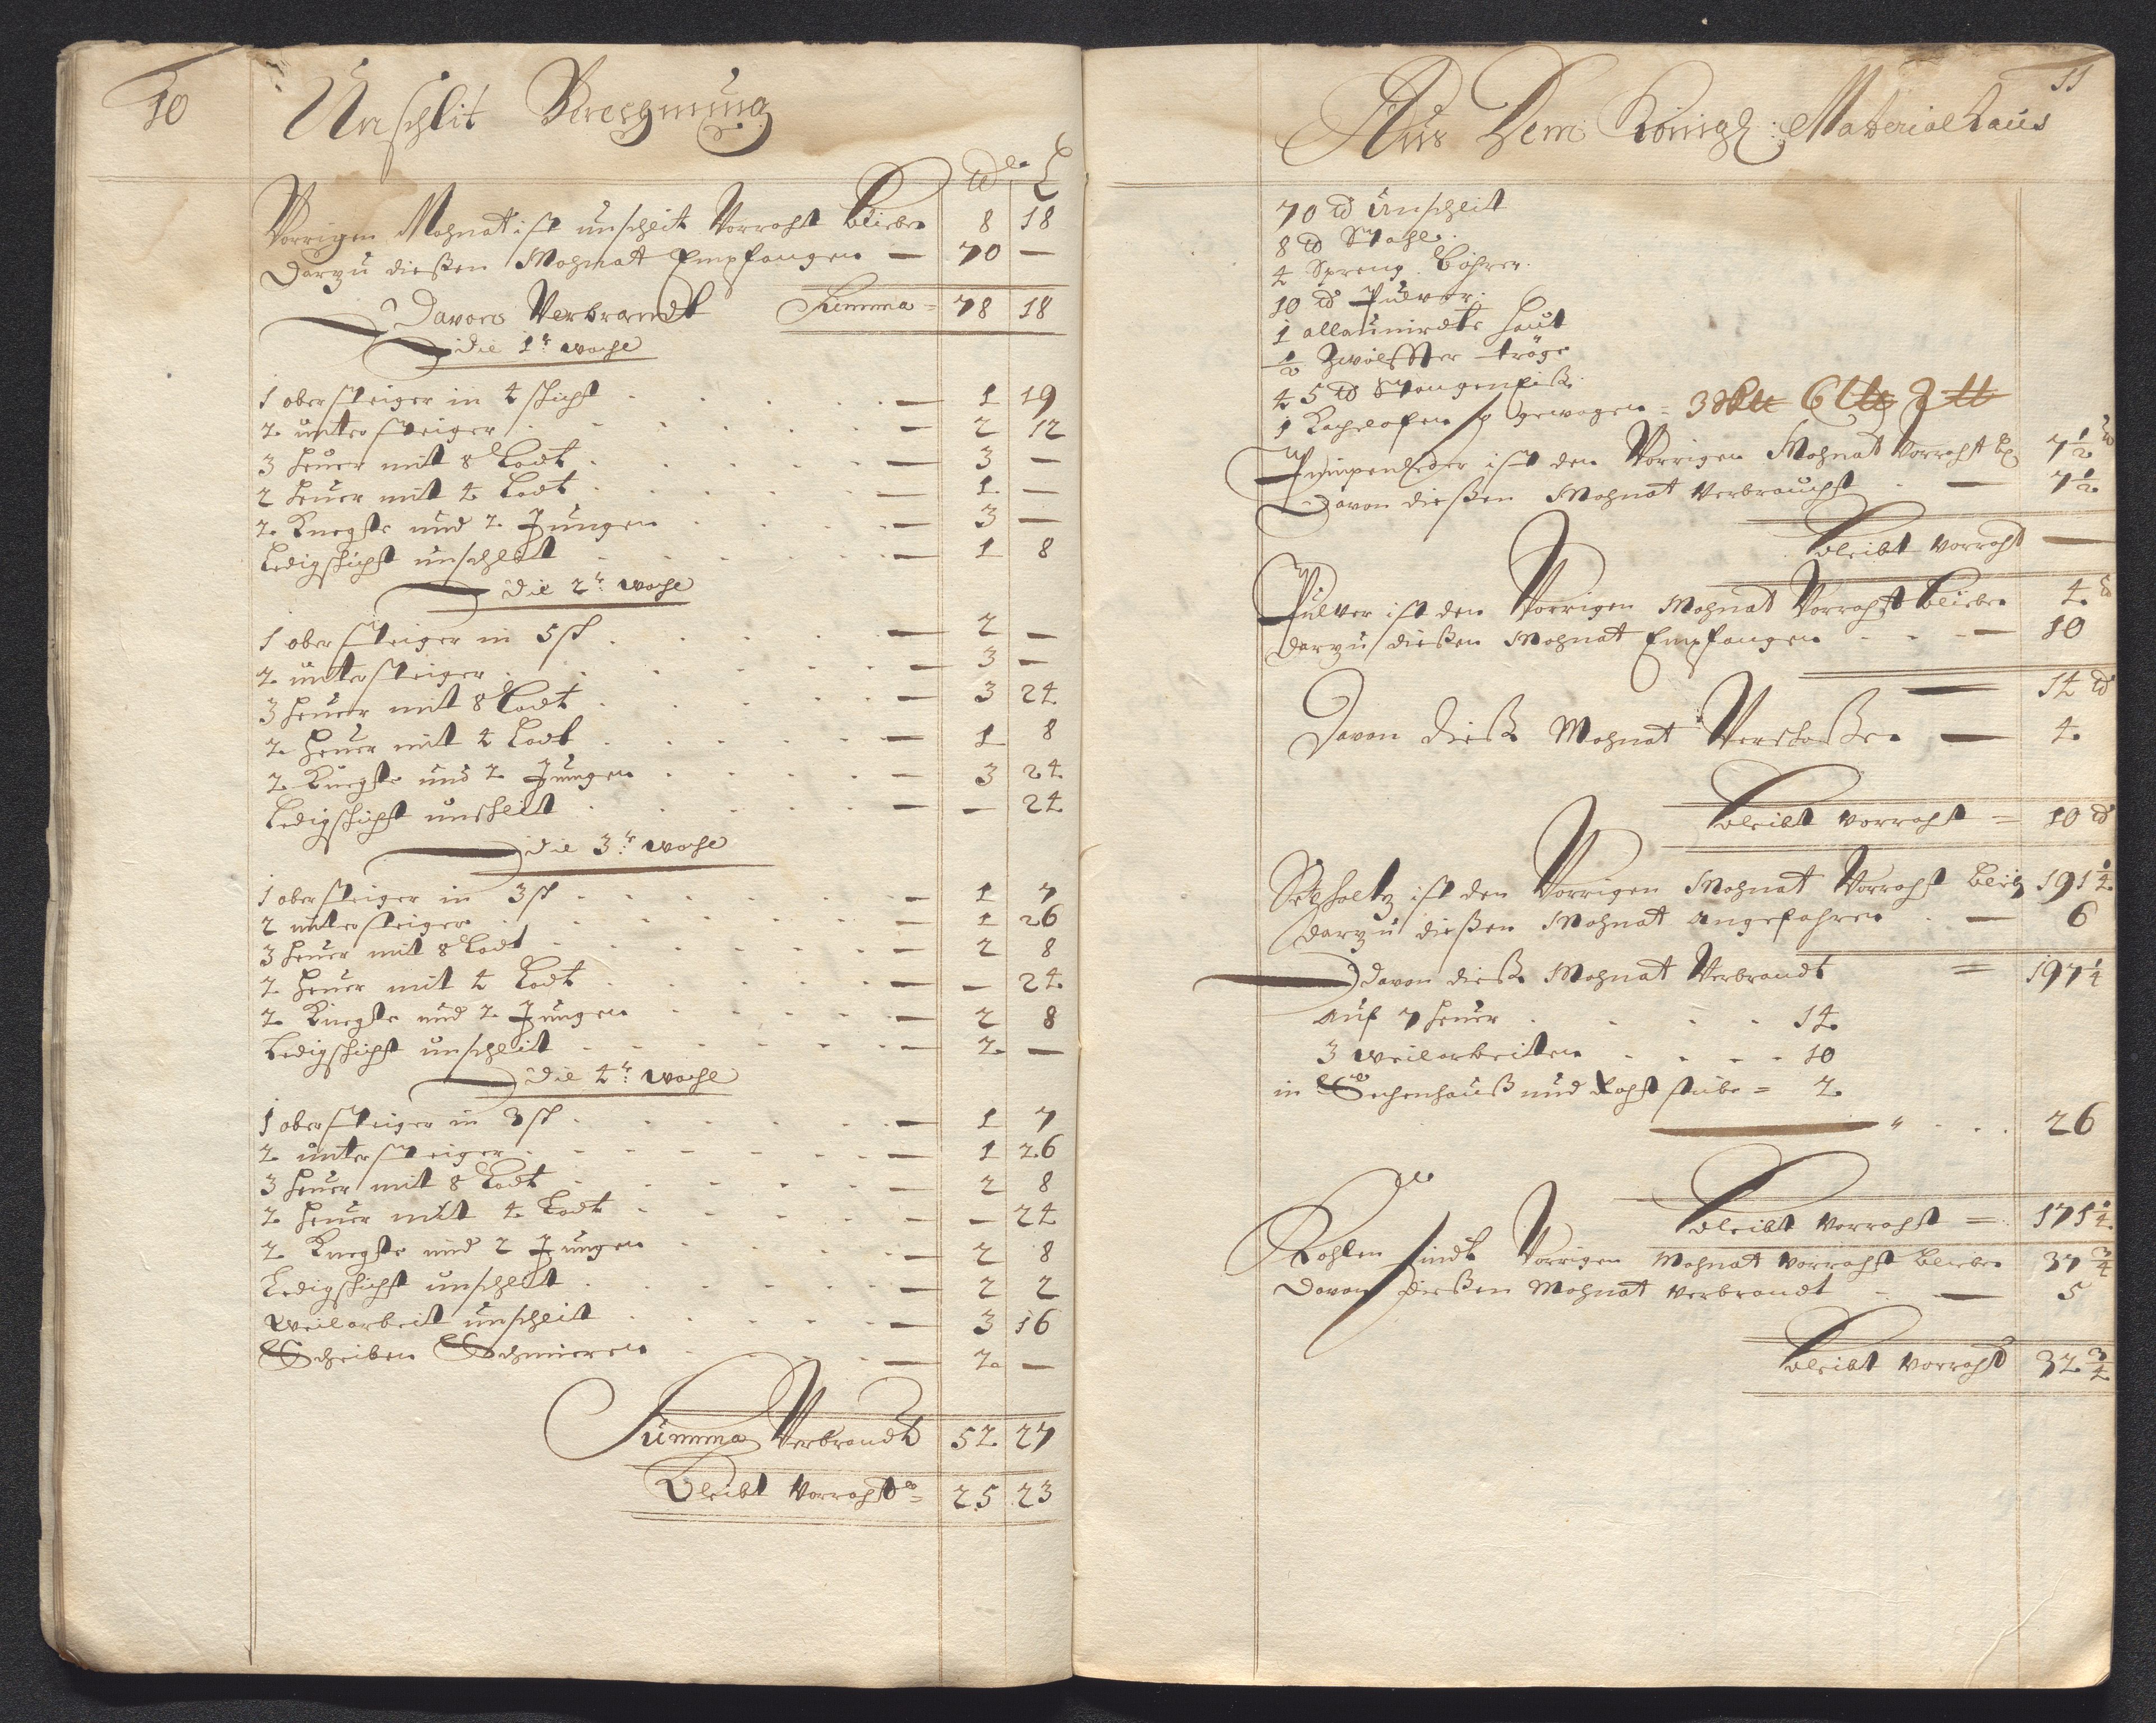 10
Unschlit Berechnung
℔ L
Vorrigen Mohnat ist unschlit Vorraht blieben 8 18
Darzu dießen Mohnat Empfangen — 70 —
Davon Verbrandt Summa = 78 18
Die 1te woche
1 obersteiger in 4 schicht — 1 19
2 untersteiger — 2 12
3 heuer mit 8 Lodt — 3 —
2 heuer mit 4 Lodt — 1 —
2 Knechte und 2 Jungen — 3 —
Ledigschicht unschlit — 1 8
Die 2te woche
1 obersteiger in 5 sch — 2 —
2 untersteiger — 3 —
3 heuer mit 8 Lodt — 3 24
2 heuer mit 4 Lodt — 1 8
2 Knechte und 2 Jungen — 3 24
Ledigschicht unschlit — — 24
Die 3te woche
1 obersteiger in 3 sch — 1 7
2 untersteiger — 1 26
3 heuer mit 8 Lodt — 2 8
2 heuer mit 4 Lodt — — 24
2 Knechte und 2 Jungen — 2 8
Ledigschicht unschleit — 2 —
Die 4te woche
1 obersteiger in 3 sch — 1 7
2 untersteiger — 1 26
3 heuer mit 8 Lodt — 2 8
2 heuer mit 4 Lodt — — 24
2 Knechte und 2 Jungen — 2 8
Ledigschicht unschlit — 2 2
Weilarbeit unschleit — 3 16
Scheiben Schmieren — 2 —
Summa Verbrandt 52 27
Bleibt Vorraht = 25 23
11
Aus Dem Königl: Materialhaus
70 ℔ Unschleit
8 ℔ Stahl
4 Spreng Bohrer
10 ℔ Pulver
1 allaunirdte haut
1/2 Zwölffter tröge
45 ℔ Stangeneiß
1 Kachelofen gewogen =
Pumpenleder ist den Vorrigen Mohnat Vorraht bl 7 1/2 ℔
Davon dießen Mohnat Verbraucht — 7 1/2
Bleibt Vorraht —
Pulver ist den Vorrigen Mohnat Vorraht blieben 4 ℔
Darzu dießen Mohnat Empfangen — 10
— 14 ℔
Davon dieße Mohnat Verschoßen — 4
Bleibt Vorraht = 10 ℔
Setzholtz ist den Vorrigen Mohnat Vorraht blieb 191 1/4
Darzu dießen Mohnat angefahren — 6
Davon dieße Mohnat Verbrandt = 197 1/4
auf 7 heuer 14
3 weilarbeiten 10
in Zechenhauß und stube = 2
26
Bleibt Vorraht = 171 1/4
Kohlen sindt Vorrigen Mohnat Vorraht blieben 37 3/4
Davon dießen Mohnat Verbrandt — 5
Bleibt Vorraht 32 3/4